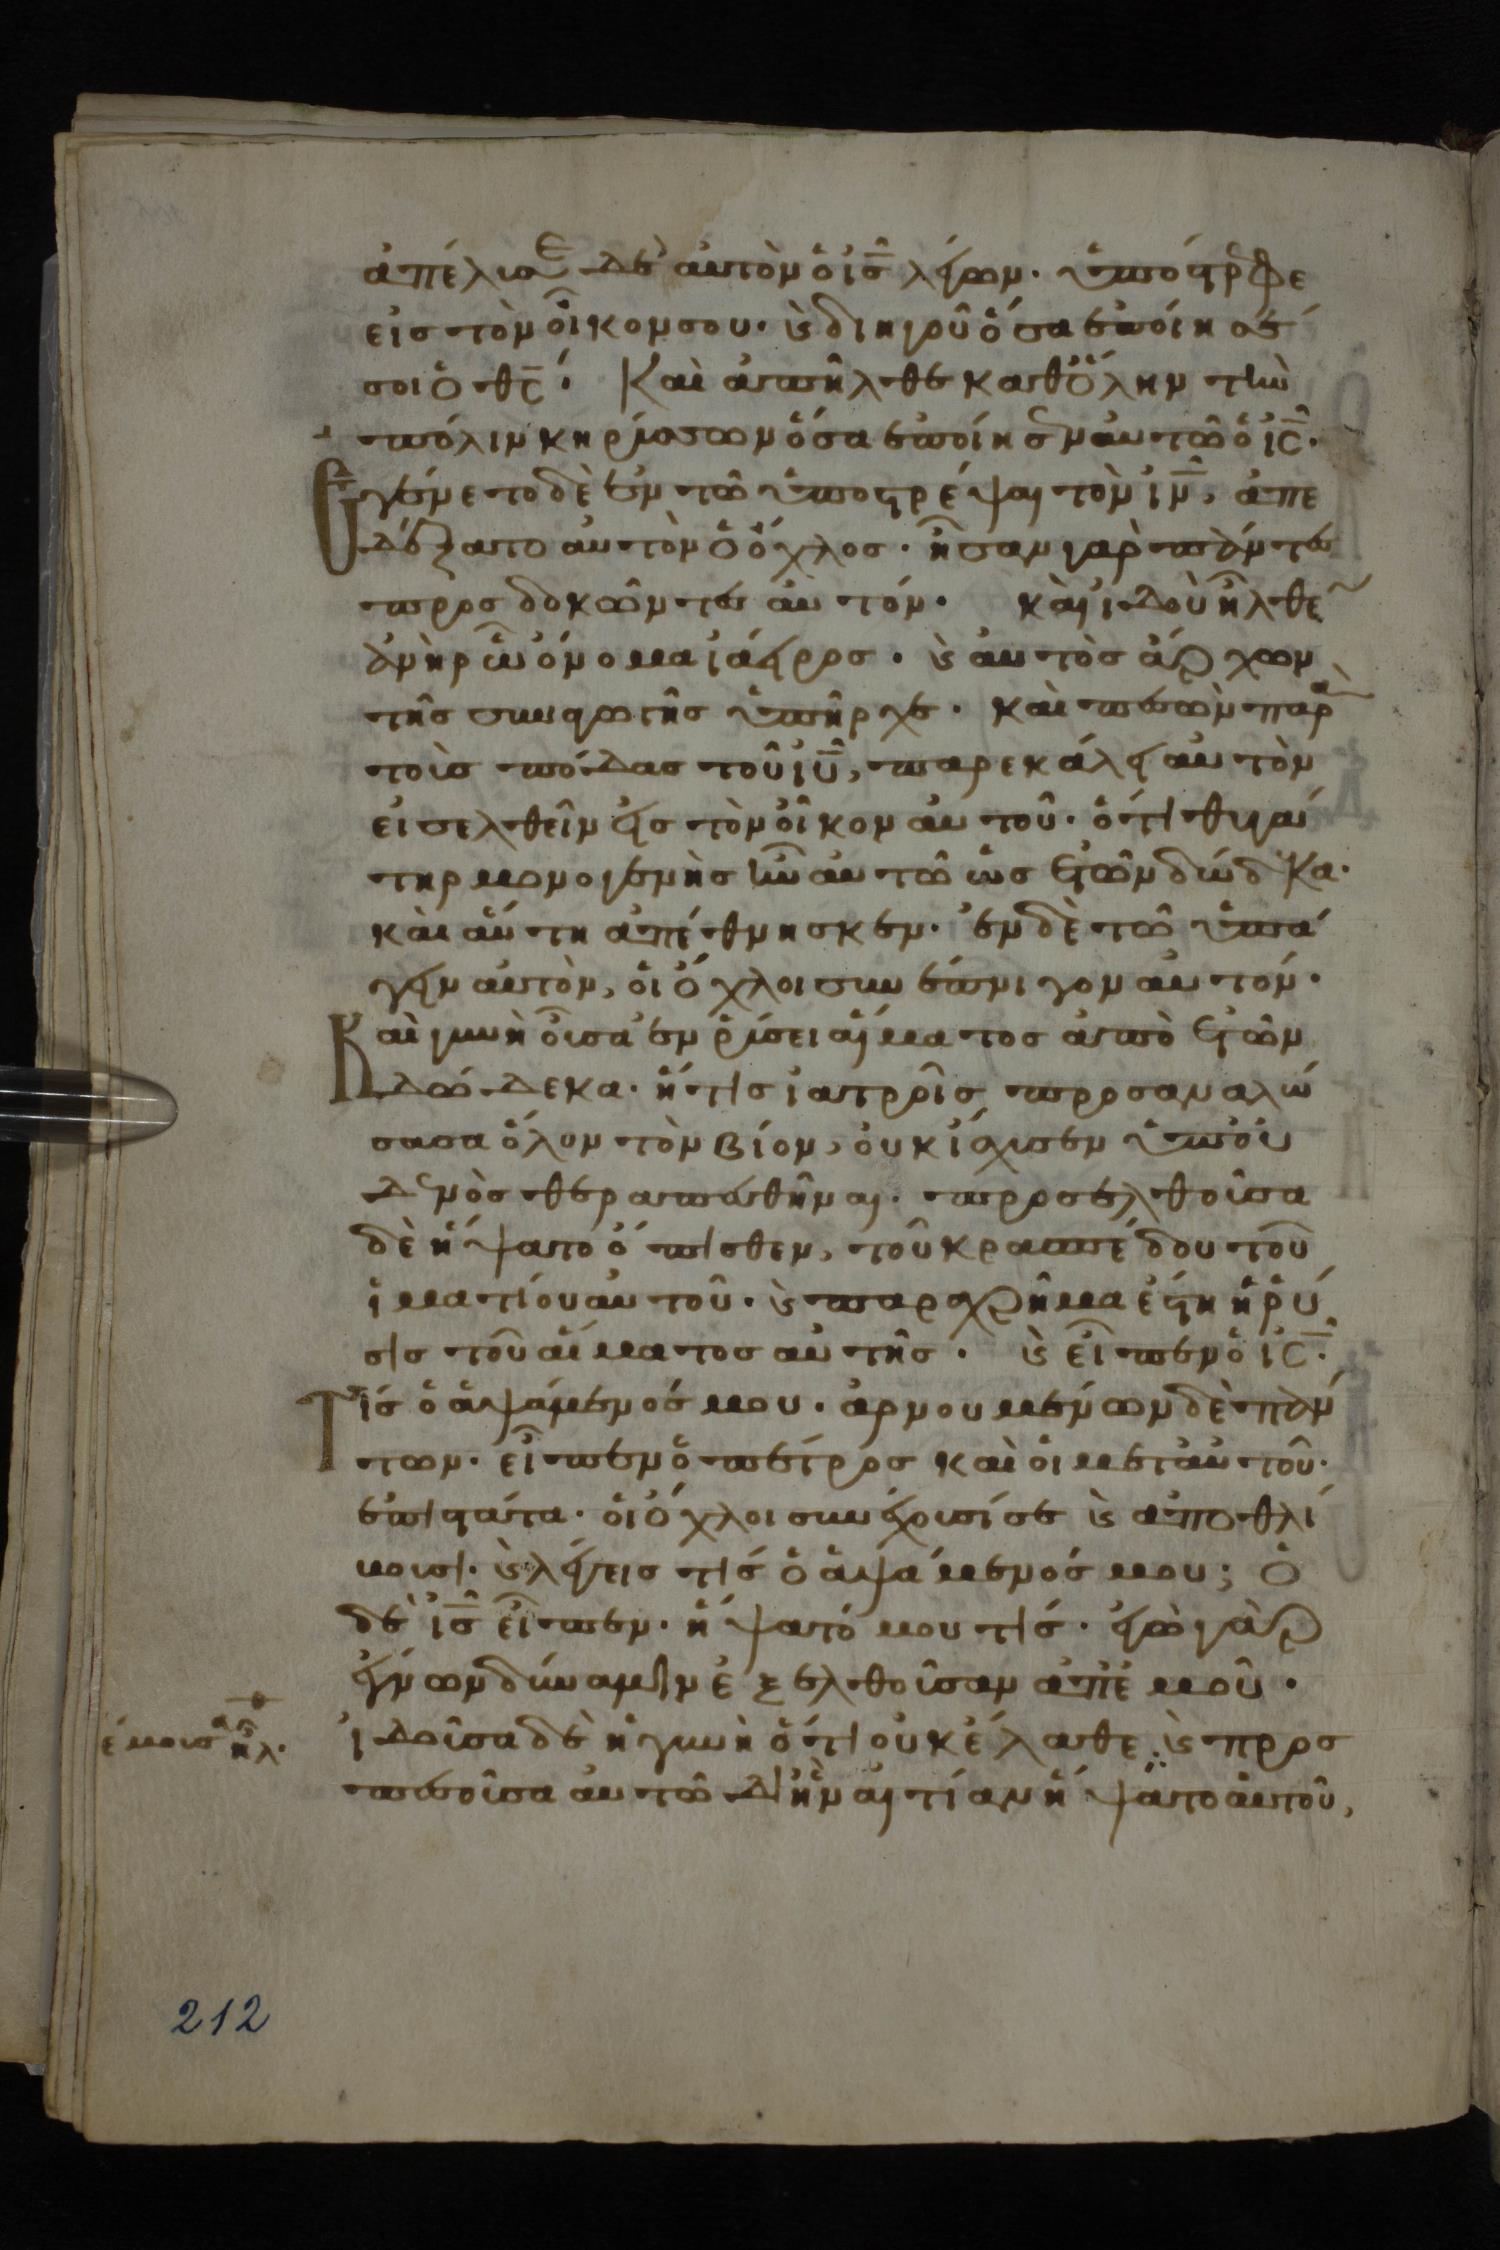 ἀπέλυσε δὲ αὐτὸν ὁ ις λέγων· ὑπόστρεφε
εἰς τὸν οἶκον σου· κ διηγοῦ ὅσα ἐποίησέ
σοι ὁ θς· Καὶ ἀπῆλθε καθ ὅλην τὴν
πόλιν κηρύσσων ὅσα ἐποίησεν αὐτῶ ὁ ις·
Εγένετο δὲ ἐν τῶ ὑποστρέψαι τὸν ιν, ἀπε
δέξατο αὐτὸν ὁ ὄχλος· ἦσαν γὰρ πάντες
προσδοκῶντες αὐτόν· καὶ ἰδοὺ ἦλθε
ἀνὴρ ὧ ὄνομα ἰάειρος· κ αὐτὸς ἄρχων
τῆς συναγωγῆς ὑπῆρχε· καὶ πεσὼν παρὰ
τοὺς πόδας τοῦ ιυ, παρεκάλει αὐτὸν
εἰσελθεῖν εἰς τὸν οἶκον αὐτοῦ· ὅτι θυγά
τηρ μονογενὴς ἦν αὐτῶ ὡς ἐτῶν δώδεκα·
καὶ αὕτη ἀπέθνησκεν· ἐν δὲ τῶ ὑπά
γειν αὐτὸν, οἱ ὄχλοι συνέπνιγον αὐτόν·
Καὶ γυνὴ οὖσα ἐν ῥύσει αἵματος ἀπὸ ἐτῶν
δώδεκα· ἥτις ἰατροῖς προσαναλώ
σασα ὅλον τὸν βίον, οὐκ ἴσχυσεν ὑπ οὐ
δενὸς θεραπευθῆναι· προσελθοῦσα
δὲ ἥψατο ὄπισθεν, τοῦ κρασπέδου τοῦ
ἱματίου αὐτοῦ· κ παραχρῆμα ἔστη ἡ ῥύ
σις τοῦ αἵματος αὐτῆς· κ εἶπεν ὁ ις·
Τίς ὁ ἁψάμενός μου· ἀρνουμένων δὲ πάν
των· εἶπεν ὁ πέτρος καὶ οἱ μετ αὐτοῦ·
ἐπιστάτα· οἱ ὄχλοι συνέχουσί σε κ ἀποθλί
βουσι· κ λέγεις τίς ὁ ἁψάμενός μου; Ὁ
δὲ ις εἶπεν· ἥψατό μου τίς· ἐγὼ γὰρ
ἔγνων δύναμιν ἐξελθοῦσαν ἀπ ἐμοῦ·
ἰδοῦσα δὲ ἡ γυνὴ ὅτι οὐκ ἔλαθε κ προσ
πεσοῦσα αὐτῶ δι ἣν αἰτίαν ἥψατο αὐτοῦ,
212